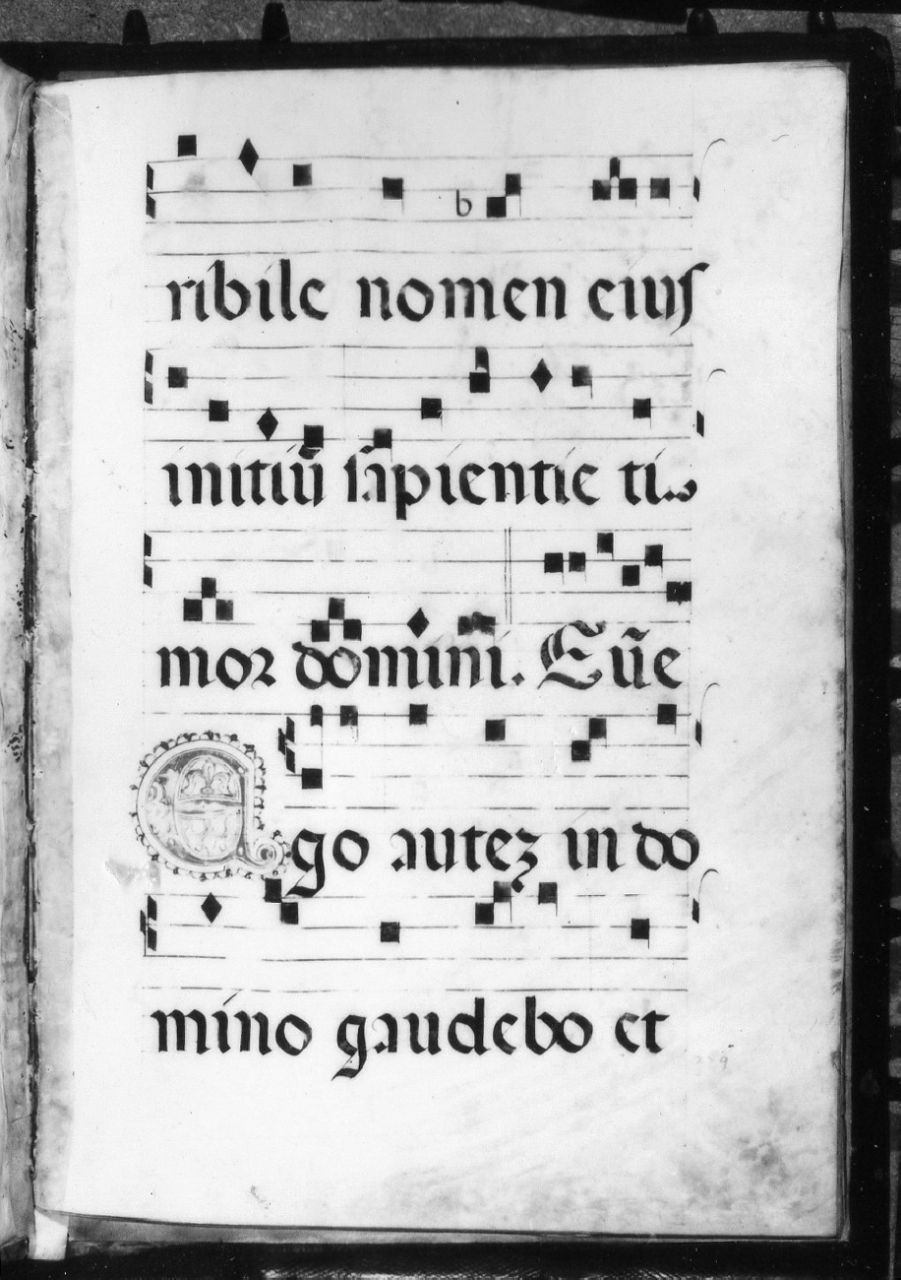 ribile nomen eiuſ
initiũ ſapientie ti
mor domini. Eũe
Ego autez in do
mino gaudebo et